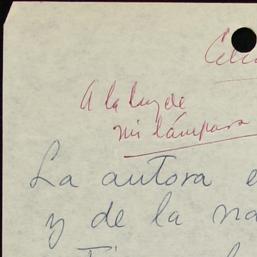 A la luz de
mi lámpara
La autora e
y de la na